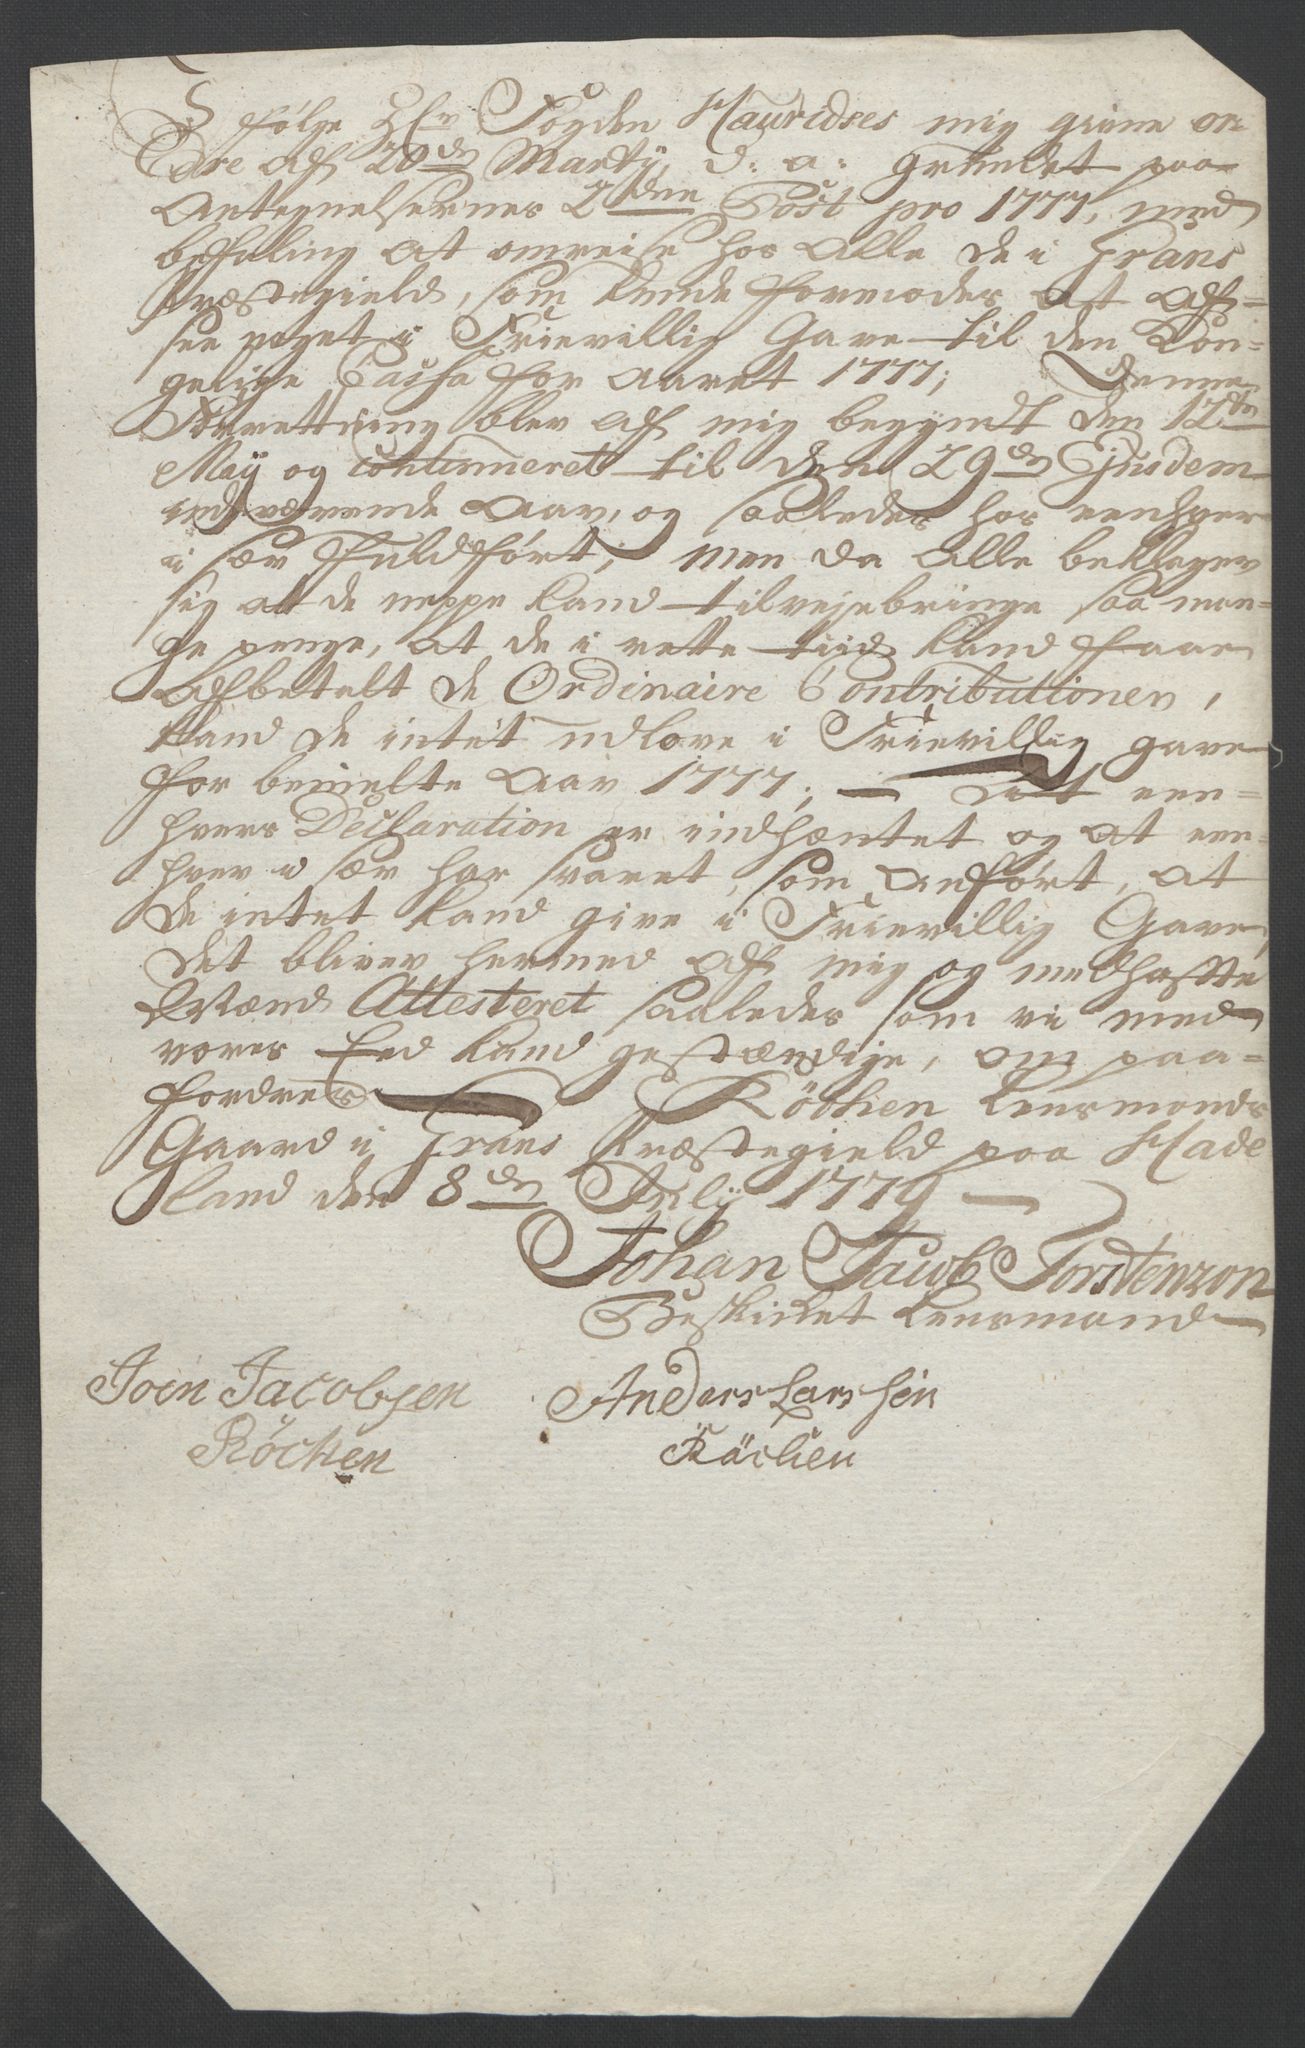 I følge Hr Fogden Hauridses mig givne or-
dre af 20de Marty d: a: grundet paa
Antegnelsernes 2den Post pro 1777, med
befaling at omreise hos Alle de i Grans
Præstegield, som kunde formodes at af-
see noget i Frievillig Gave til den Kon-
gelige Cassa for Aaret 1777; Denne
Forretning blev af mig begyndt den 12te
Maÿ og Continueret til den 29de Ejusdem
indeværende Aar, og saaledes hos eenhver
i sær fuldført; men da Alle beklager
sig at de neppe kand tilvejebringe saa man-
ge penge, at de i rette tiid kand faae
afbetalt de Ordinaire Contributioner,
kand de intet udlove i Frievillig gave
for bemelte Aar 1777; At een-
hvers Declaration er indhæntet og at een-
hver i sær har svaret, som anført, at
de intet kand give i Frievillig Gave,
det bliver hermed af mig og medhafte
Mænd Attesteret saaledes som vi med
vores Eed kand gestændige, om paa-
fordres Röchen Lensmands
Gaard i Grans Præstegield paa Hade
land den 8de Julÿ 1779
Johan Jacob Torstenzon
Beskicket Lensmand
Joen Jacobsen Anders Larsen
Röchen Röchen